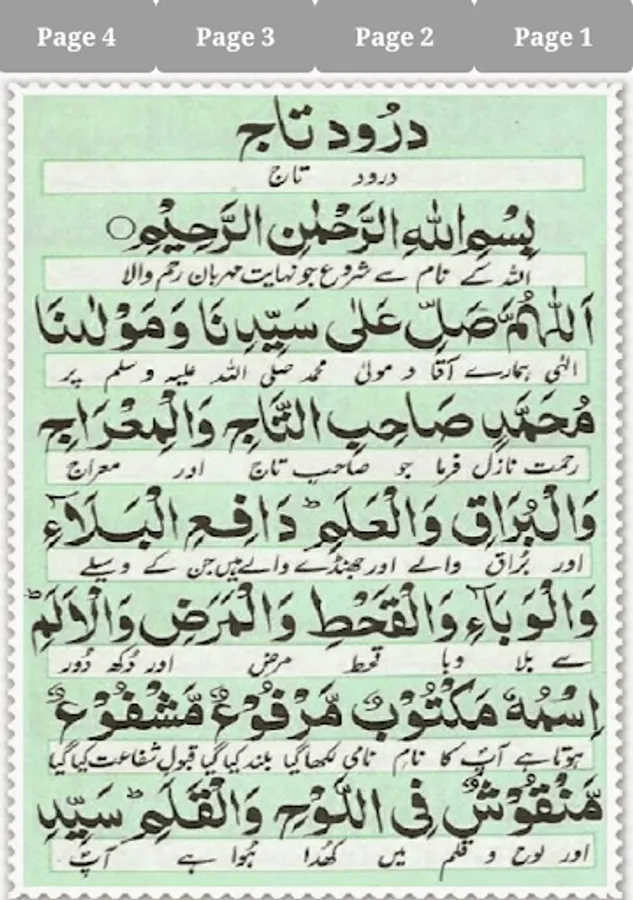 Page 4 Page 3 Page 2 Page 1
درُود تاج
درود تاج
بِسْمِ اللهِ الرَّحْمٰنِ الرَّحِيْمِ○
اللہ کے نام سے شروع جو نہایت مہربان رحم والا
اَللّٰهُمَّ صَلِّ عَلٰى سَيِّدِنَا وَمَوْلٰىنَا
الٰہی ہمارے آقا و مولیٰ محمد صلی اللہ علیہ وسلم پر
مُحَمَّدٍ صَاحِبِ التَّاجِ وَالْمِعْرَاجِ
رحمت نازل فرما جو صاحب تاج اور معراج
وَالْبُرَاقِ وَالْعَلَمِ ؕ دَافِعِ الْبَلَآءِ
اور بُراق والے اور جھنڈے والے ہیں جن کے وسیلے
وَالْوَبَآءِ وَالْقَحْطِ وَالْمَرَضِ وَالْاَلَمِ ؕ
سے بلا وبا قحط مرض اور دُکھ دُور
اِسْمُهٗ مَكْتُوْبٌ مَّرْفُوْعٌ مَّشْفُوْعٌ
ہوتا ہے آپؐ کا نام نامی لکھا گیا بلند کیا گیا قبول شفاعت کیا گیا
مَّنْقُوْشٌ فِى اللَّوْحِ وَالْقَلَمِ ؕ سَيِّدِ
اور لوح و قلم میں کھُدا ہُوا ہے آپؐ